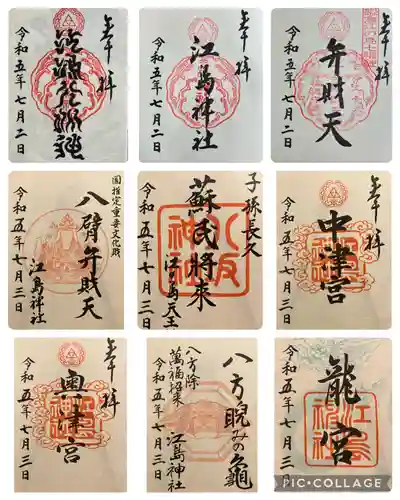 奉拝
令和五年七月二日
奉拝
江島神社
令和五年七月二日
奉拝
弁財天
令和五年七月二日
国指定重要文化財
八臂弁財天
江島神社
令和五年七月三日
子孫長久
蘇民将来
江島天王
令和五年七月三日
奉拝
中津宮
令和五年七月三日
奉拝
奥津宮
令和五年七月三日
八方睨みの亀
八方除
萬福招来
江島神社
令和五年七月三日
龍宮
令和五年七月三日
PIC・COLLAGE